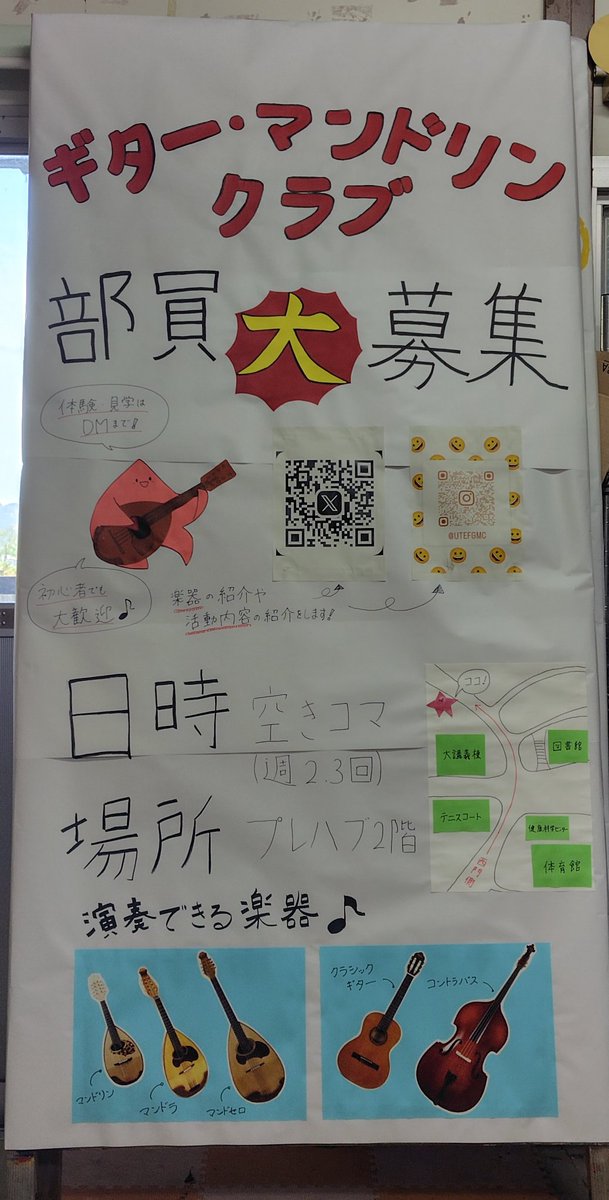 ギター・マンドリン
クラブ
部員大募集
体験・見学は
DMまで!
初心者でも
大歓迎♪
X
@UTEFGMC
楽器の紹介や
活動内容の紹介をします!
日時 空きコマ
(週2.3回)
場所 プレハブ2階
ココ!
大講義棟
図書館
テニスコート
健康科学センター
体育館
西門側
演奏できる楽器♪
マンドリン
マンドラ
マンドセロ
クラシック
ギター
コントラバス